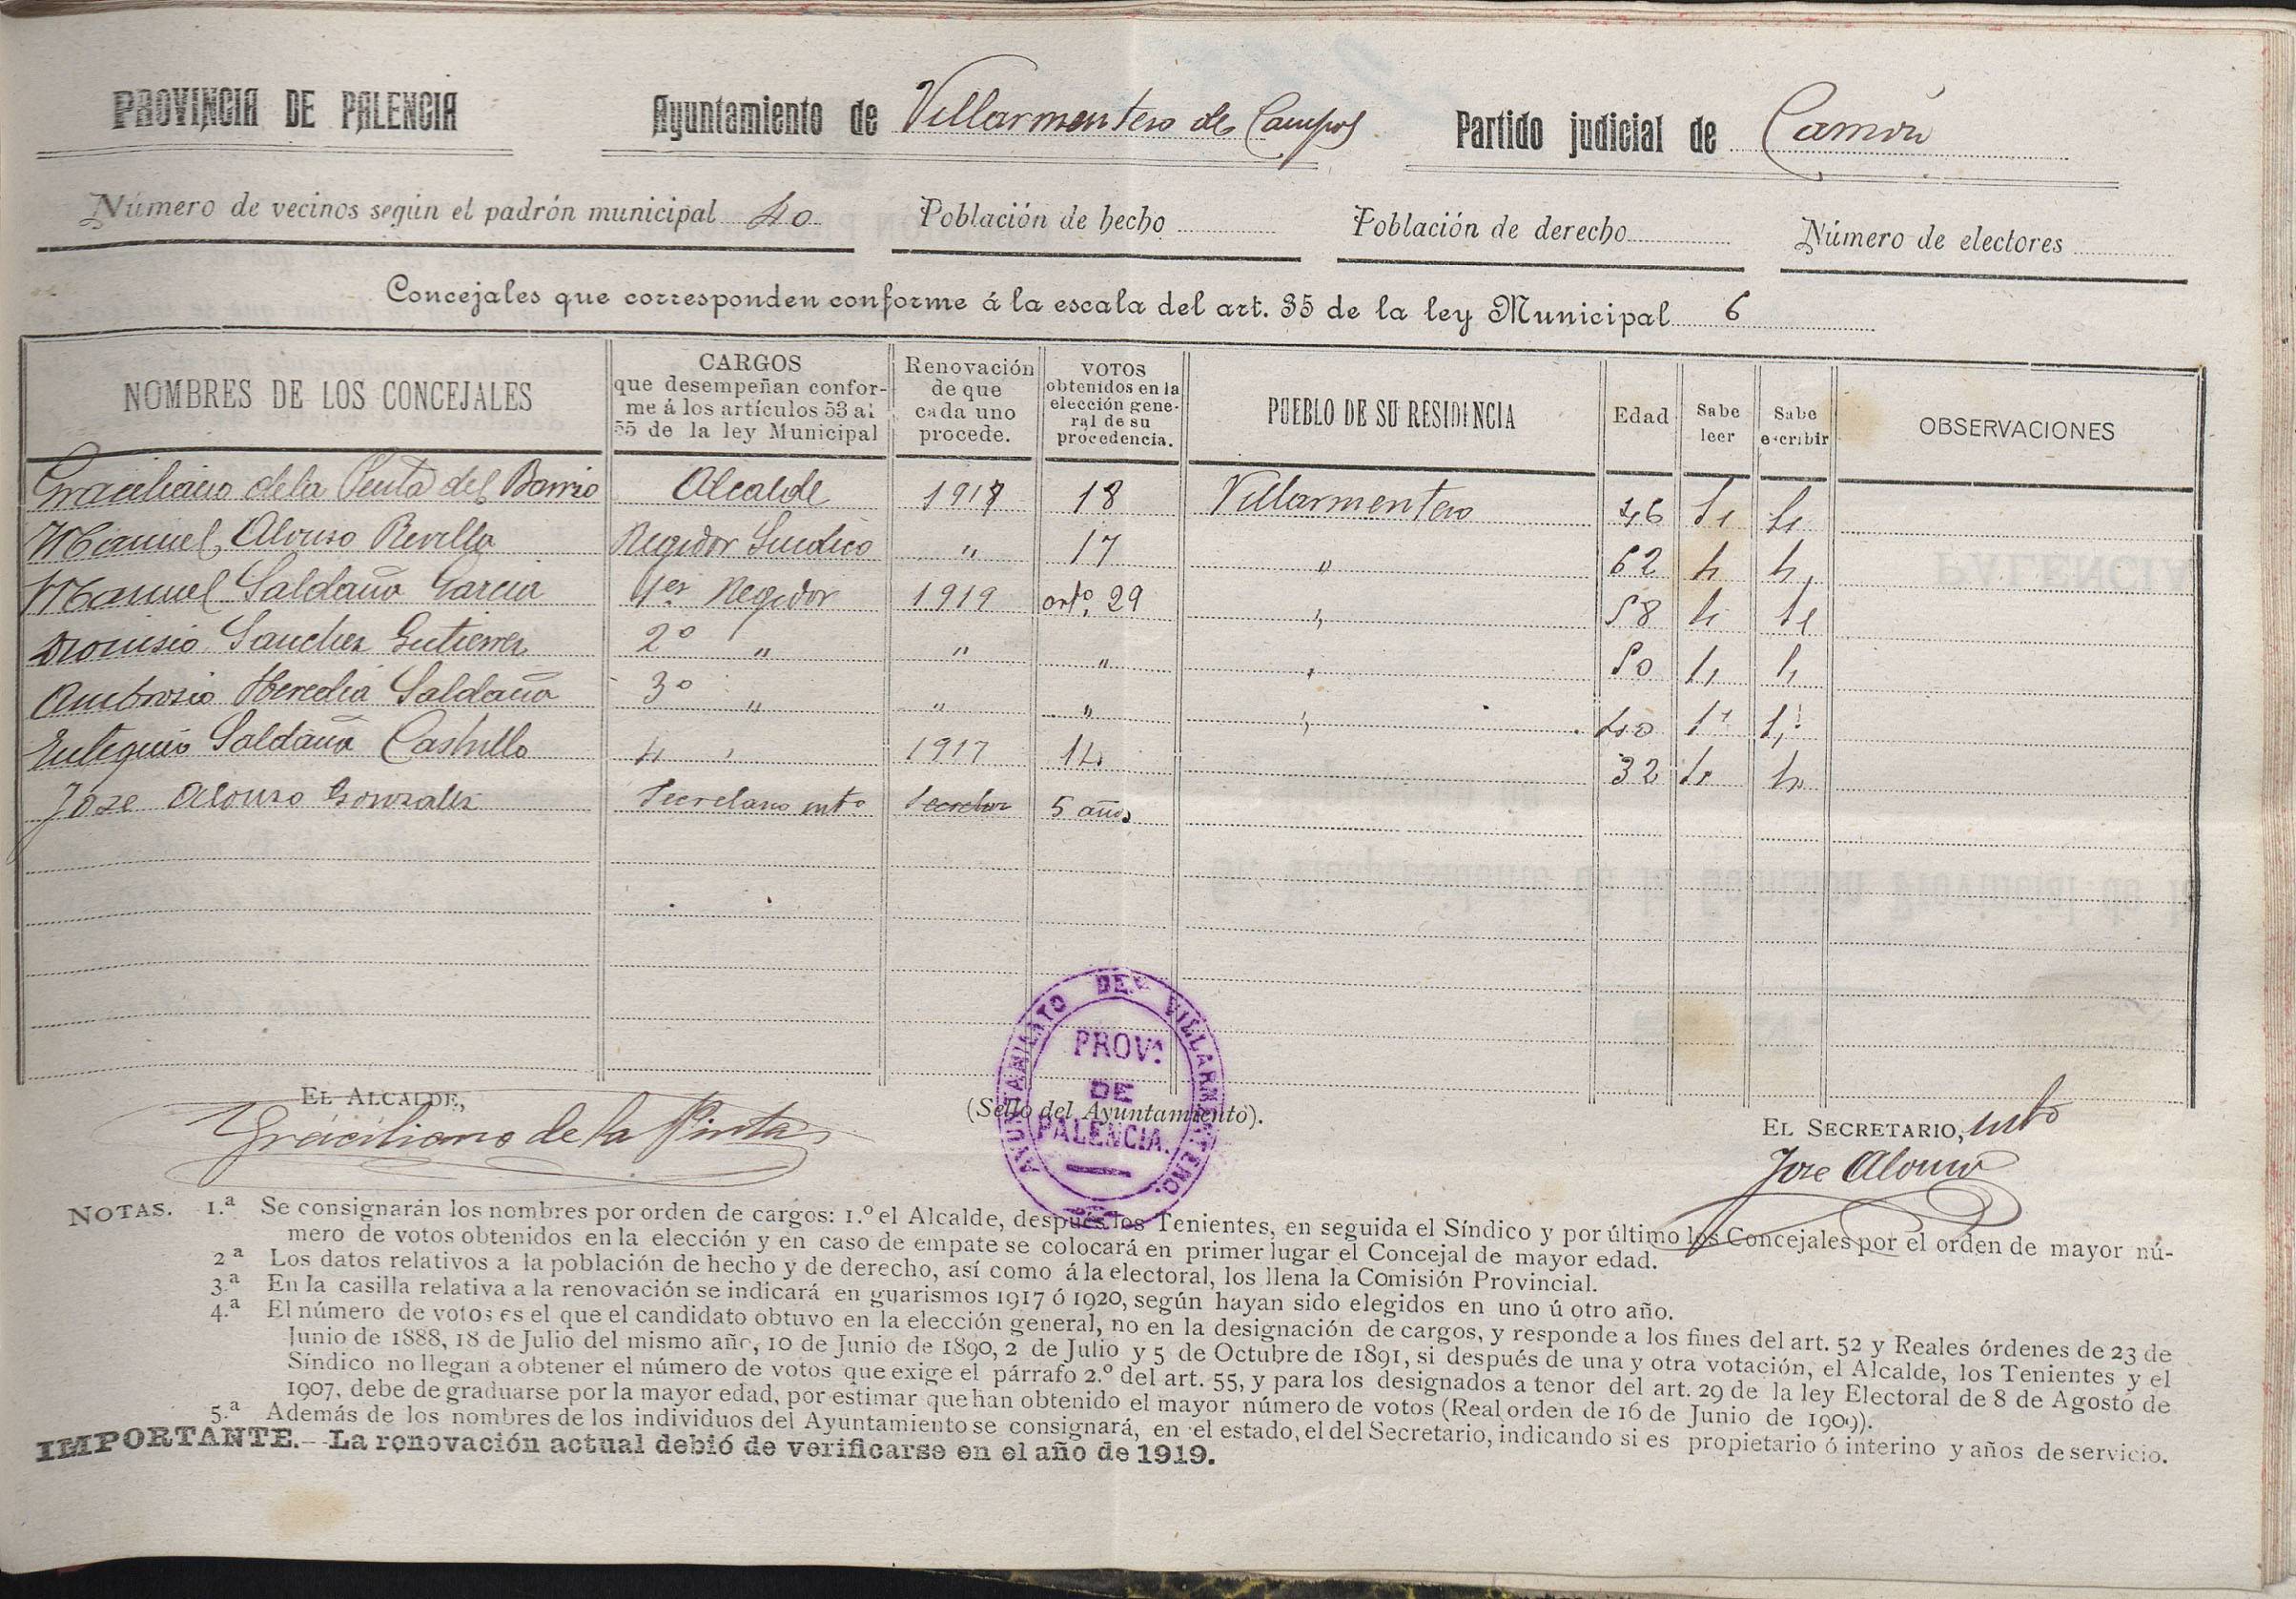 PROVINCIA DE PALENCIA Ayuntamiento de Villarmentero de Campos Partido judicial de Carrión
Número de vecinos según el padrón municipal 40 Población de hecho Población de derecho Número de electores
Concejales que corresponden conforme á la escala del art. 35 de la ley Municipal 6
NOMBRES DE LOS CONCEJALES
CARGOS
que desempeñan confor-
me á los artículos 53 al
55 de la ley Municipal
Renovación
de que
cada uno
procede.
VOTOS
obtenidos en la
elección gene-
ral de su
procedencia.
PUEBLO DE SU RESIDENCIA
Edad
Sabe
leer
Sabe
escribir
OBSERVACIONES
Graciliano de la Pinta del Barrio Alcalde 1917 18 Villarmentero 46 Si Si
Manuel Alonso Revilla Regidor Sindico " 17 " 62 Si Si
Manuel Saldaña Garcia 1er Regidor 1919 arto. 29 " 58 Si Si
Dionisio Sanchez Gutierrez 2º " " " " 50 Si Si
Ambrosio Heredia Saldaña 3º " " " " 40 Si Si
Eutequio Saldaña Castrillo 4 " 1917 14 32 Si Si
Jose Alonso Gonzalez Secretario into 5 años
EL ALCALDE,
Graciliano de la Pinta
(Sello del Ayuntamiento).
AYUNTAMIENTO DE VILLARMENTERO.
PROVA.
DE
PALENCIA.
EL SECRETARIO, into
Jose Alonso
NOTAS. 1.ª Se consignarán los nombres por orden de cargos: 1.º el Alcalde, después los Tenientes, en seguida el Síndico y por último los Concejales por el orden de mayor nú-
mero de votos obtenidos en la elección y en caso de empate se colocará en primer lugar el Concejal de mayor edad.
2.ª Los datos relativos a la población de hecho y de derecho, así como á la electoral, los llena la Comisión Provincial.
3.ª En la casilla relativa a la renovación se indicará en guarismos 1917 ó 1920, según hayan sido elegidos en uno ú otro año.
4.ª El número de votos es el que el candidato obtuvo en la elección general, no en la designación de cargos, y responde a los fines del art. 52 y Reales órdenes de 23 de
Junio de 1888, 18 de Julio del mismo año, 10 de Junio de 1890, 2 de Julio y 5 de Octubre de 1891, si después de una y otra votación, el Alcalde, los Tenientes y el
Síndico no llegan a obtener el número de votos que exige el párrafo 2.º del art. 55, y para los designados a tenor del art. 29 de la ley Electoral de 8 de Agosto de
1907, debe de graduarse por la mayor edad, por estimar que han obtenido el mayor número de votos (Real orden de 16 de Junio de 1909).
5.ª Además de los nombres de los individuos del Ayuntamiento se consignará, en el estado, el del Secretario, indicando si es propietario ó interino y años de servicio.
IMPORTANTE.—La renovación actual debió de verificarse en el año de 1919.